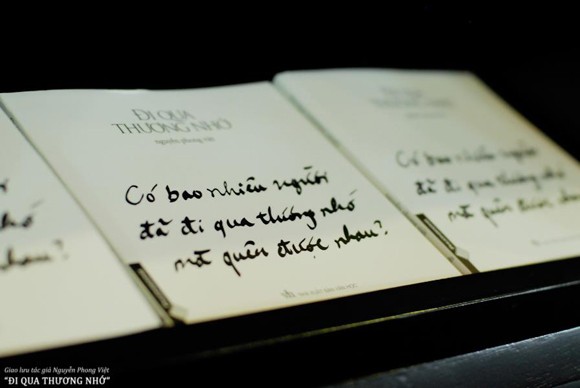 ĐI QUA
THƯƠNG NHỚ
nguyễn phong việt
Có bao nhiêu người
đã đi qua thương nhớ
mà quên được nhau?
Có bao nhiêu người
đã đi qua thương nhớ
mà quên được nhau?
Giao lưu tác giả Nguyễn Phong Việt
"ĐI QUA THƯƠNG NHỚ"